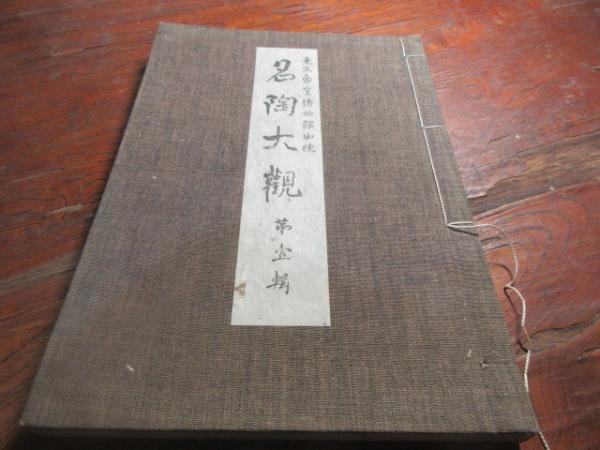 東京帝室博物館出陳
名陶大觀
第壹輯